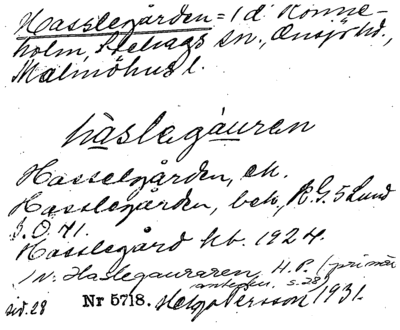 Hasslegården = 1 d. Rönne-
holm, Stehags sn., Onsjö hd.,
Malmöhus l.
hàslegàuren
Hasselgården, ek.
Hasslegården, beb., R.G.5 Lund
3. O. 41.
Hasslegård hb. 1924.
1 V. Haslegauraren H.P. (primär
anteckn. s. 28)
sid. 28 Nr 5718. Helge Persson 1931.